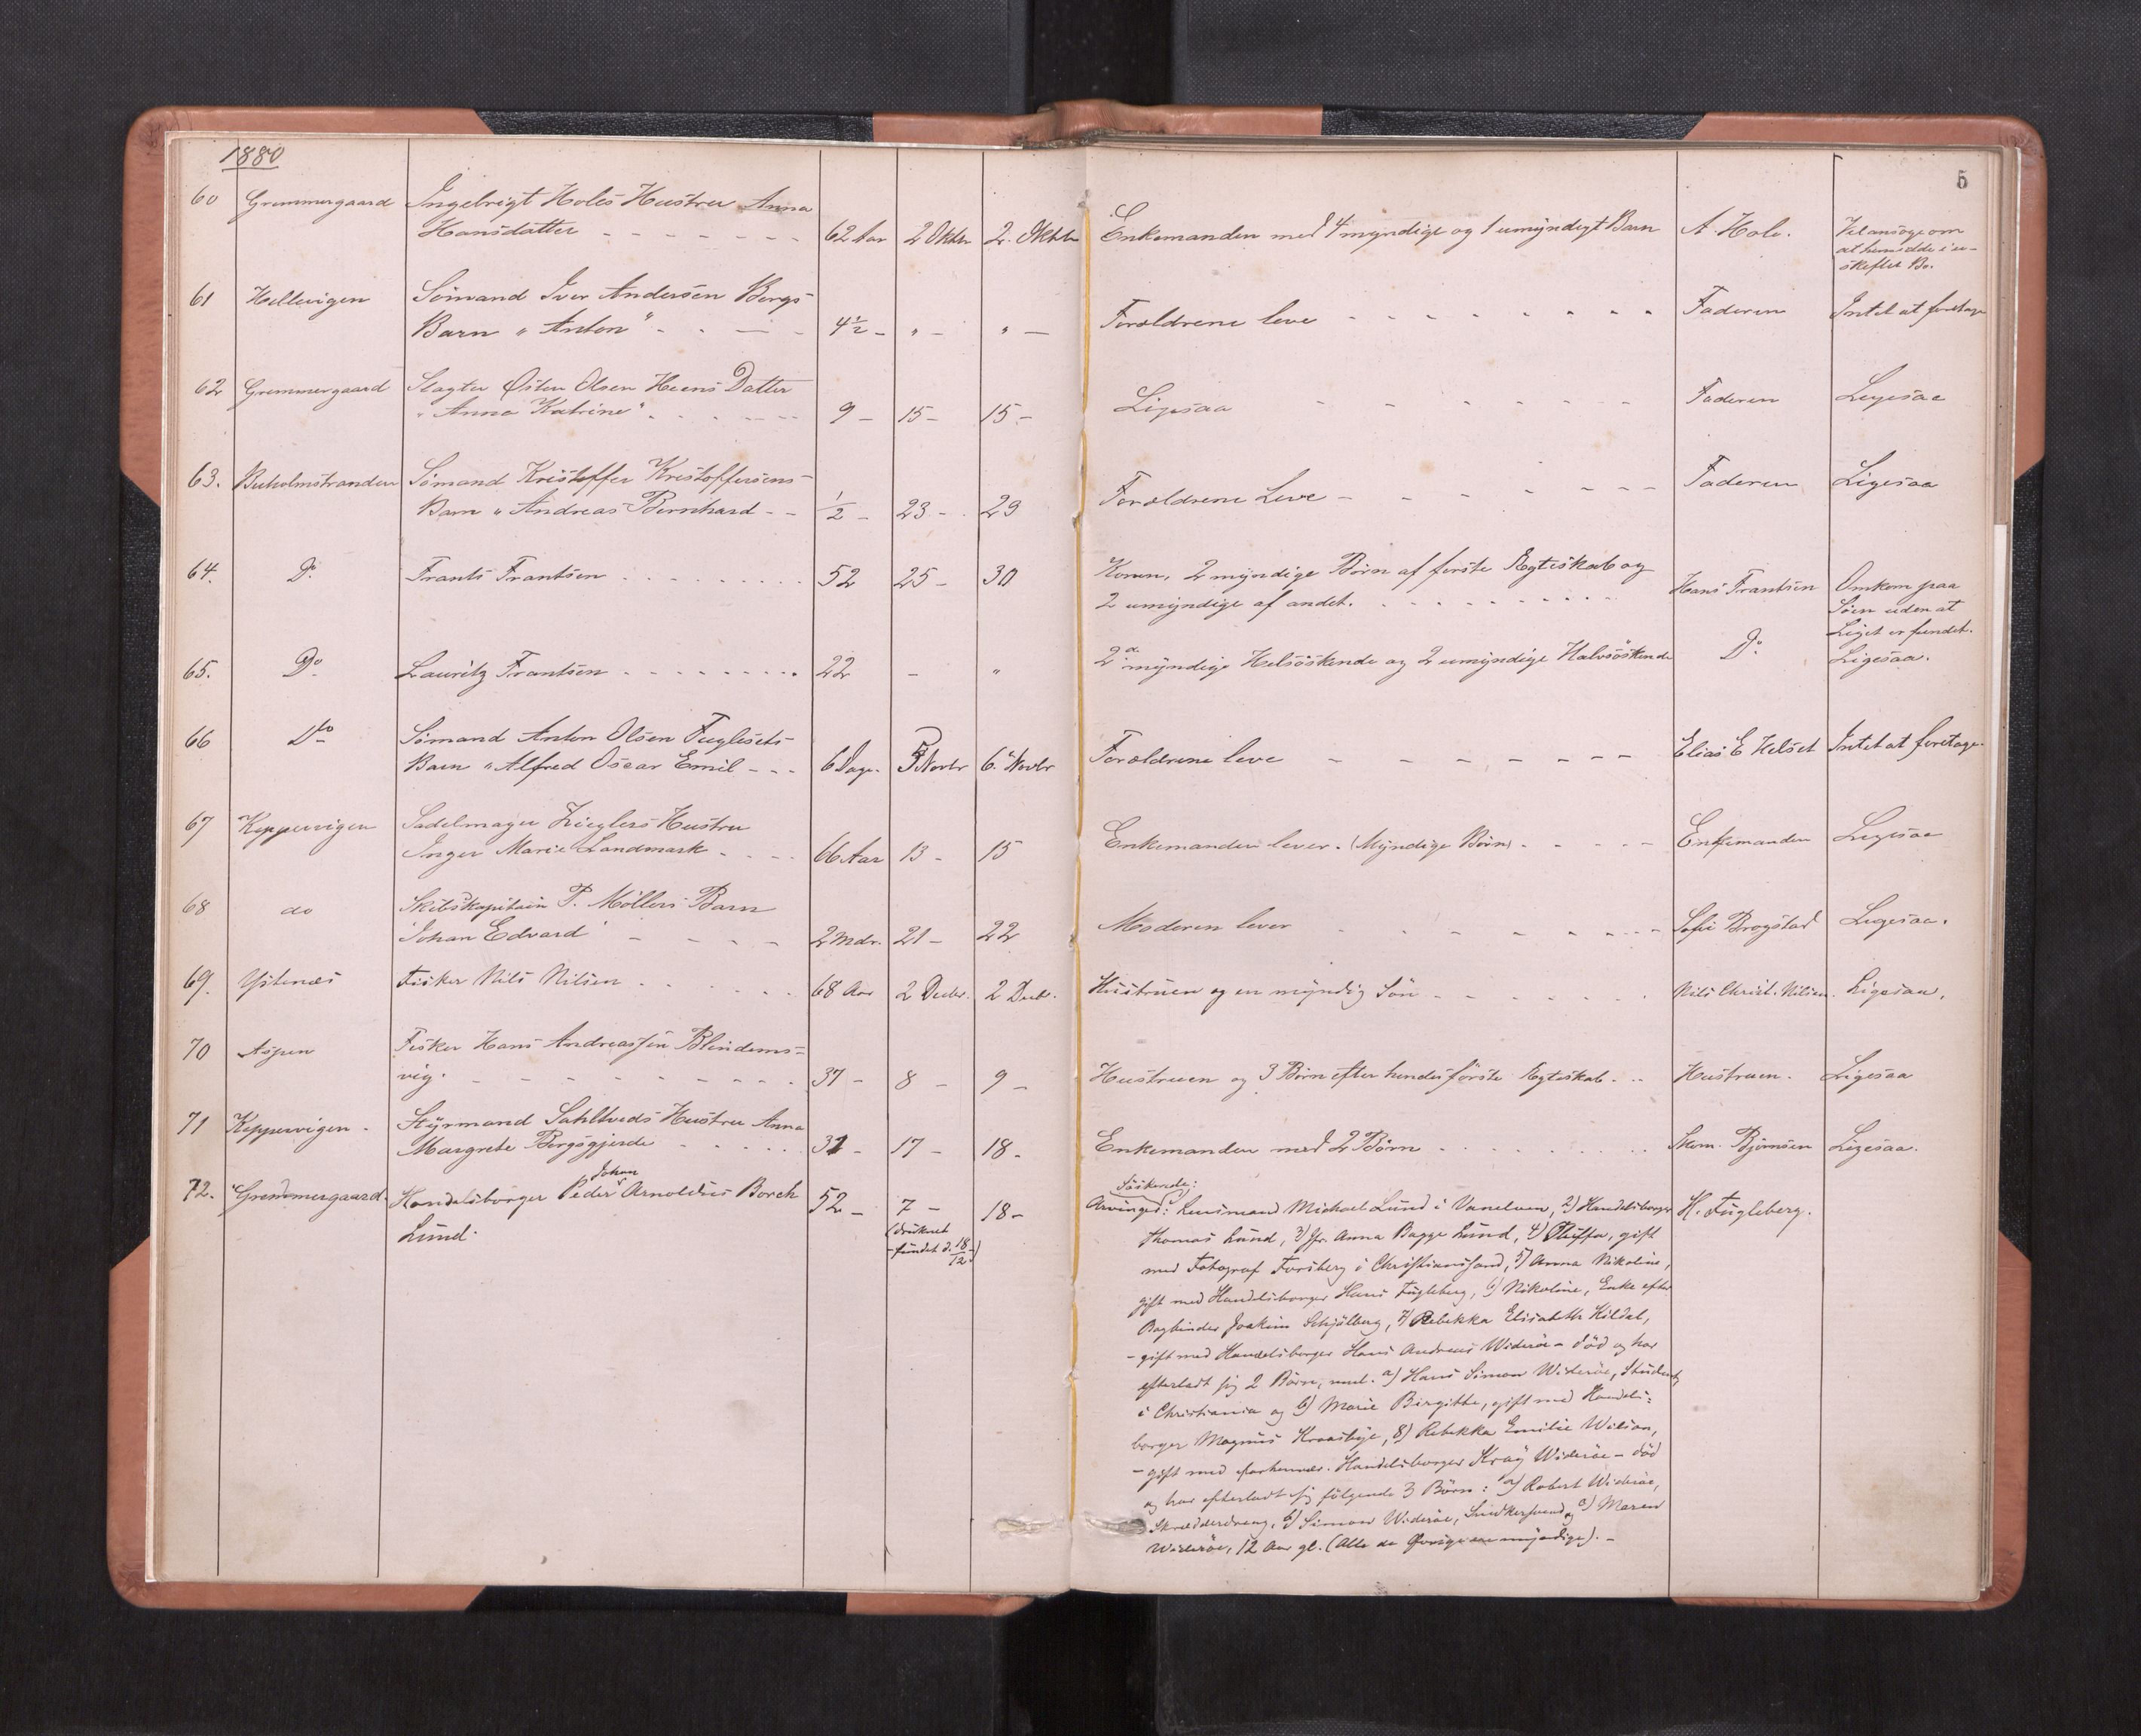 1880
5
60 Grimmergaard Ingebrigt Holes Hustru Anna
Hansdatter - - - 62 Aar 2 Oktbr 2. Oktbr Enkemanden med 4 myndige og 1 umyndigt Barn A. Hole. Vil ansøge om
at hensidde i u-
skiftet Bo.
61 Hellevigen Sömand Iver Andersen Bergs
Barn "Anton" - - 4½ - " - " - Forældrene leve - - - Faderen Intet at foretage
62 Grimmergaard Slagter Østen Olsen Heens Datter
"Anna Katrine" - - - 9 - 15 - 15 - Ligesaa - - - Faderen Ligesaa
63. Buholmstranden Sömand Kristoffer Kristoffersens
Barn "Andreas Bernhard - - ½ - 23 - 29 Forældrene Leve - - - Faderen Ligesaa
64. Do Frants Frantsen - - - 52 25 - 30 Konen, 2 myndige Börn af förste Ægteskab og
2 umyndige af andet. - - - Hans Frantsen Omkom paa
Söen uden at
Liget er fundet.
65. Do Lauritz Frantsen - - - 22 - " 2 myndige Helsöskende og 2 umyndige Halvsöskende Do Ligesaa.
66 Do Sömand Anton Olsen Fuglesets
Barn "Alfred Oscar Emil - - - 6 Dage. 5 Novbr 6. Novbr Forældrene leve - - - Elias E Helset Intet at foretage.
67 Keppervigen Sadelmager Zieglers Hustru
Inger Marie Landmark - - - 66 Aar 13 - 15 Enkemanden lever. (Myndige Börn) - - - Enkemanden Ligesaa
68 do Skibskapitain P. Möllers Barn
"Johan Edvard" - - - 2 Mdr. 21 - 22 Moderen lever - - - Sofie Brogstad Ligesaa.
69. Ystenes Fisker Nils Nilsen - - - 68 Aar 2 Decbr. 2 Decbr. Hustruen og en myndig Sön - - - Nils Christ. Nilsen. Ligesaa.
70 Aspen Fisker Hans Andreassen Blindems=
vig. - - - 37 - 8 - 9 - Hustruen og 3 Börn efter hendes förste Ægteskab. - - Hustruen. Ligesaa
71 Keppervigen - Styrmand Sahltveds Hustru Anna
Margrete Borgsgjerde - - - 31 - 17 - 18 - Enkemanden med 2 Börn - - - Skom. Björnsen Ligesaa.
72. Grimmergaard. Handelsborger Peder Johan Arnoldus Borch
Lund. 52 - 7 - 18 -
(druknet
- fundet d. 18/12 -)
Söskende:
Arvinger: Lensmand Michael Lund i Vanelven, 2) Handelsborger H. Fugleberg.
Thomas Lund, 3) Jfr. Anna Bagge Lund, 4) gift
med Fotograf Forsberg i Christianssand, 5) Anna Nikoline,
gift med Handelsborger Hans Fugleberg, 6) Nikoline, Enke efter
Bogbinder Joakim Schjölberg, 7) Rebekka Elisabeth Kildal,
- gift med Handelsborger Hans Andreas Wideröe - död og har
efterladt sig 2 Börn, nml. a) Hans Simon Wideröe, Student
i Christiania og b) Marie Birgitte, gift med Handels=
borger Magnus Kraasbye, 8) Rebekka Emilie Wilson,
- gift med forhenvær. Handelsborger Krag Wideröe - död
og har efterladt sig fölgende 3 Börn: a) Robert Wideröe,
Skrædderdreng, b) Simon Wideröe, Snedkersvend og c) Maren
Wideröe, 12 Aar gl. (Alle de Øvrige ere myndige). -